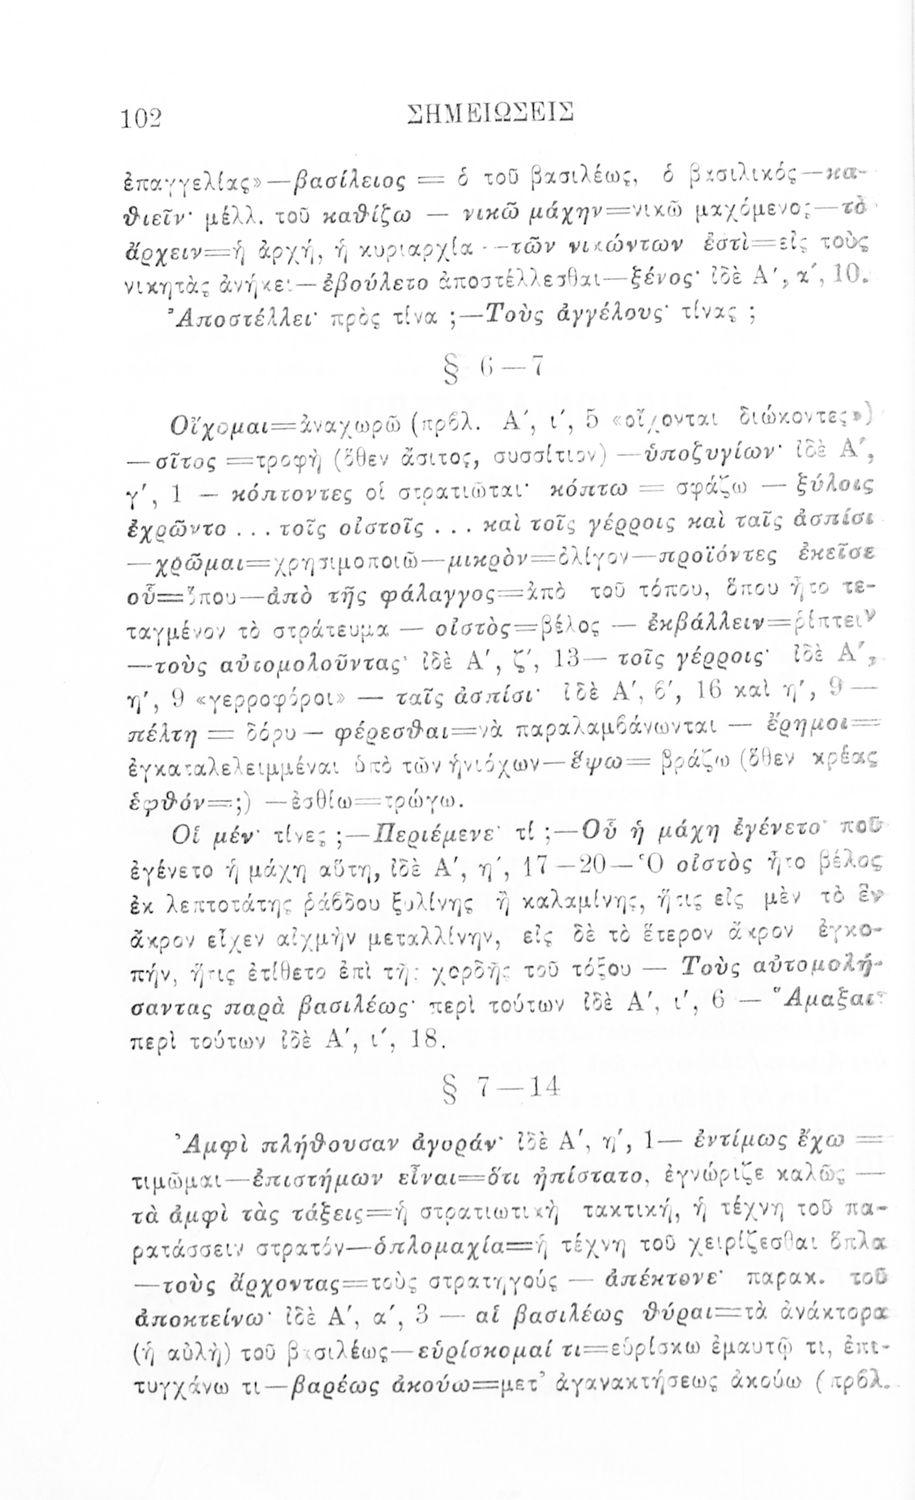 102 ΣΗΜΕΙΩΣΕΙΣ
ἐπαγγελίας» — βασίλειος = ὁ τοῦ βασιλέως, ὁ βασιλικός — κα-
θιεῖν· μέλλ. τοῦ καθίζω — νικῶ μάχην = νικῶ μαχόμενος — τὸ
ἄρχειν = ἡ ἀρχή, ἡ κυριαρχία — τῶν νικώντων ἐστὶ = εἰς τοὺς
νικητὰς ἀνήκει — ἐβούλετο ἀποστέλλεσθαι — ξένος· ἰδὲ Α΄, α΄, 10.
Ἀποστέλλει· πρὸς τίνα ; — Τοὺς ἀγγέλους· τίνας ;
§ 6 — 7
Οἴχομαι = ἀναχωρῶ (πρβλ. Α΄, ι΄, 5 «οἴχονται διώκοντες»)
— σῖτος = τροφὴ (ὅθεν ἄσιτος, συσσίτιον) — ὑποζυγίων· ἰδὲ Α΄,
γ΄, 1 — κόπτοντες οἱ στρατιῶται· κόπτω = σφάζω — ξύλοις
ἐχρῶντο ... τοῖς οἰστοῖς ... καὶ τοῖς γέρροις καὶ ταῖς ἀσπίσι
— χρῶμαι = χρησιμοποιῶ — μικρὸν = ὀλίγον — προϊόντες ἐκεῖσε
οὗ = ὅπου — ἀπὸ τῆς φάλαγγος = ἀπὸ τοῦ τόπου, ὅπου ἦτο τε-
ταγμένον τὸ στράτευμα — οἰστὸς = βέλος — ἐκβάλλειν = ῥίπτειν
— τοὺς αὐτομολοῦντας· ἰδὲ Α΄, ζ΄, 13 — τοῖς γέρροις· ἰδὲ Α΄,
η΄, 9 «γερροφόροι» — ταῖς ἀσπίσι· ἰδὲ Α΄, β΄, 16 καὶ η΄, 9 —
πέλτη = δόρυ — φέρεσθαι = νὰ παραλαμβάνωνται — ἔρημοι =
ἐγκαταλελειμμέναι ὑπὸ τῶν ἡνιόχων — ἕψω = βράζω (ὅθεν κρέας
ἑφθόν = ;) — ἐσθίω = τρώγω.
Οἱ μέν· τίνες ; — Περιέμενε· τί ; — Οὗ ἡ μάχη ἐγένετο· ποῦ
ἐγένετο ἡ μάχη αὕτη, ἰδὲ Α΄, η΄, 17 — 20 — Ὁ οἰστὸς ἦτο βέλος
ἐκ λεπτοτάτης ῥάβδου ξυλίνης ἢ καλαμίνης, ἥτις εἰς μὲν τὸ ἓν
ἄκρον εἶχεν αἰχμὴν μεταλλίνην, εἰς δὲ τὸ ἕτερον ἄκρον ἐγκο-
πήν, ἥτις ἐτίθετο ἐπὶ τῆς χορδῆς τοῦ τόξου — Τοὺς αὐτομολή-
σαντας παρὰ βασιλέως· περὶ τούτων ἰδὲ Α΄, ι΄, 6 — Ἅμαξαι·
περὶ τούτων ἰδὲ Α΄, ι΄, 18.
§ 7 — 14
Ἀμφὶ πλήθουσαν ἀγοράν· ἰδὲ Α΄, η΄, 1 — ἐντίμως ἔχω =
τιμῶμαι — ἐπιστήμων εἶναι = ὅτι ἠπίστατο, ἐγνώριζε καλῶς —
τὰ ἀμφὶ τὰς τάξεις = ἡ στρατιωτικὴ τακτική, ἡ τέχνη τοῦ πα-
ρατάσσειν στρατόν — ὁπλομαχία = ἡ τέχνη τοῦ χειρίζεσθαι ὅπλα
— τοὺς ἄρχοντας = τοὺς στρατηγούς — ἀπέκτονε· παρακ. τοῦ
ἀποκτείνω· ἰδὲ Α΄, α΄, 3 — αἱ βασιλέως θύραι = τὰ ἀνάκτορα
(ἡ αὐλὴ) τοῦ βασιλέως — εὑρίσκομαί τι = εὑρίσκω ἐμαυτῷ τι, ἐπι-
τυγχάνω τι — βαρέως ἀκούω = μετ' ἀγανακτήσεως ἀκούω (πρβλ.